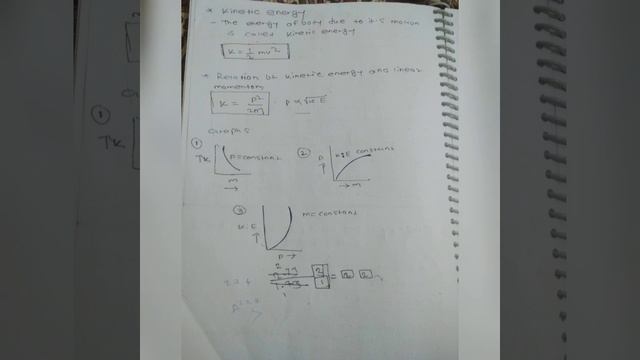 * Kinetic energy
- The energy of body due to it's motion
is called kinetic energy
K = 1/2 mv²
* Relation bt kinetic energy and linear
momentum
K = p²/2m P ∝ √K.E
Graphs
① ↑K P=constant m →
② P ↑ K.E constant → m
③ K.E ↑ m=constant P →
2 1 = 2 2